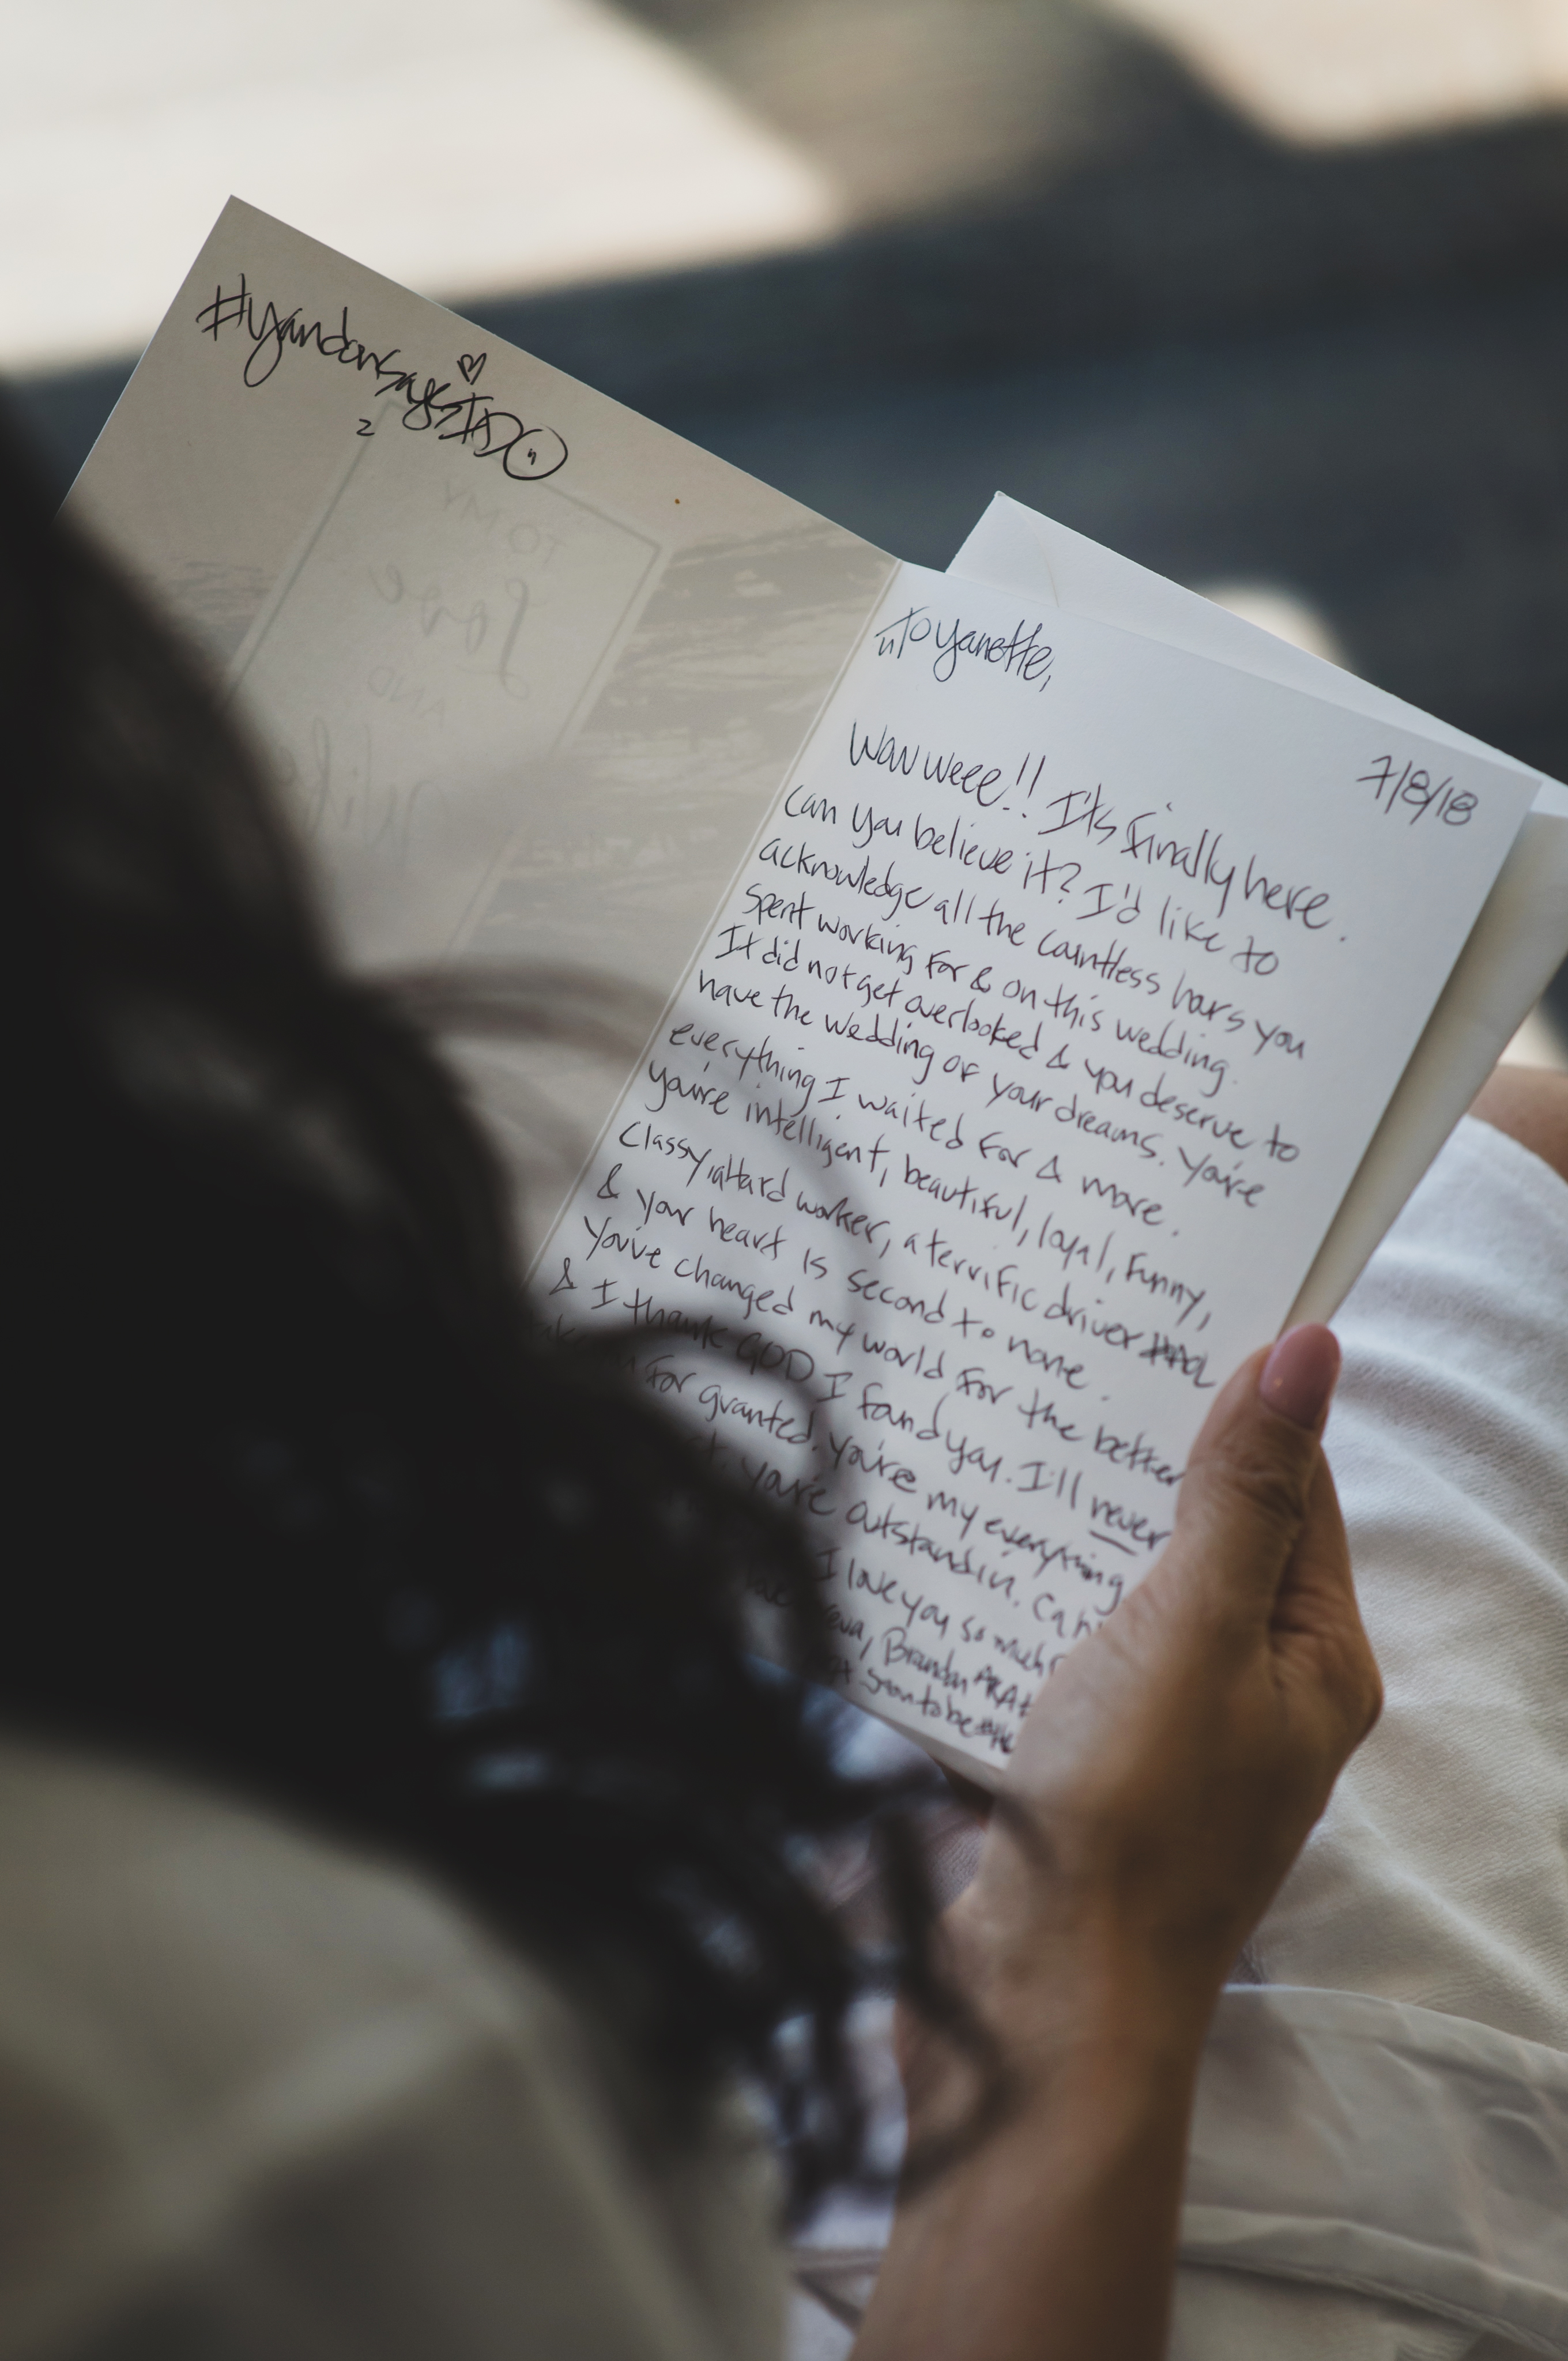 #yandonsaysIDO
2
TO MY
Love
AND
Wife
To Yanette,
7/8/18
Wow weee!! It's finally here.
Can you believe it? I'd like to
acknowledge all the countless hours you
spent working for & on this wedding.
It did not get overlooked & you deserve to
have the wedding of your dreams. You're
everything I waited for & more.
You're intelligent, beautiful, loyal, funny,
classy, a hard worker, a terrific driver
& your heart is second to none.
You've changed my world for the better
& I thank GOD I found you. I'll never
for granted. You're my everything
You're outstandin.
I love you so much
Brandon
soon to be